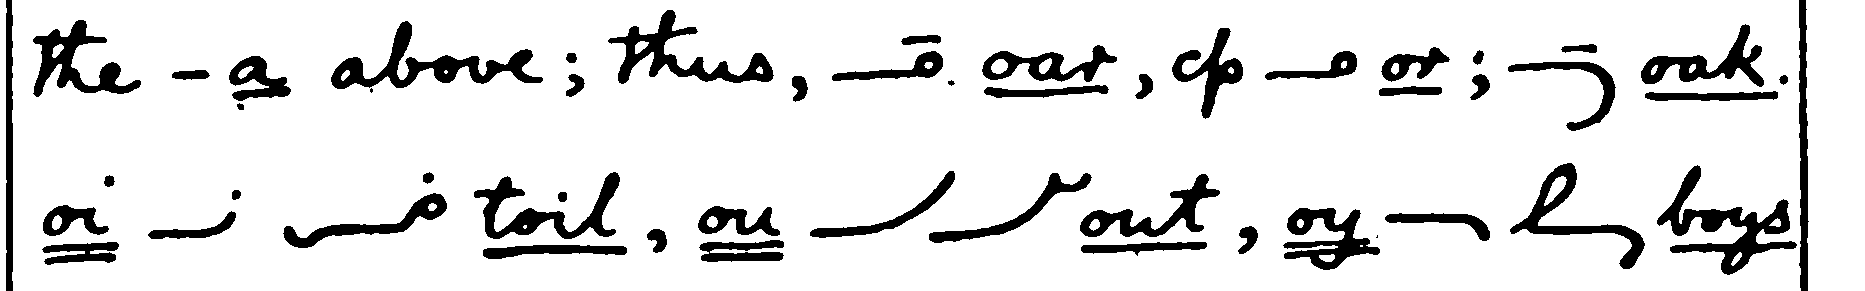 the - a above; thus, oar, cp or; oak.
oi toil, ou out, oy boys